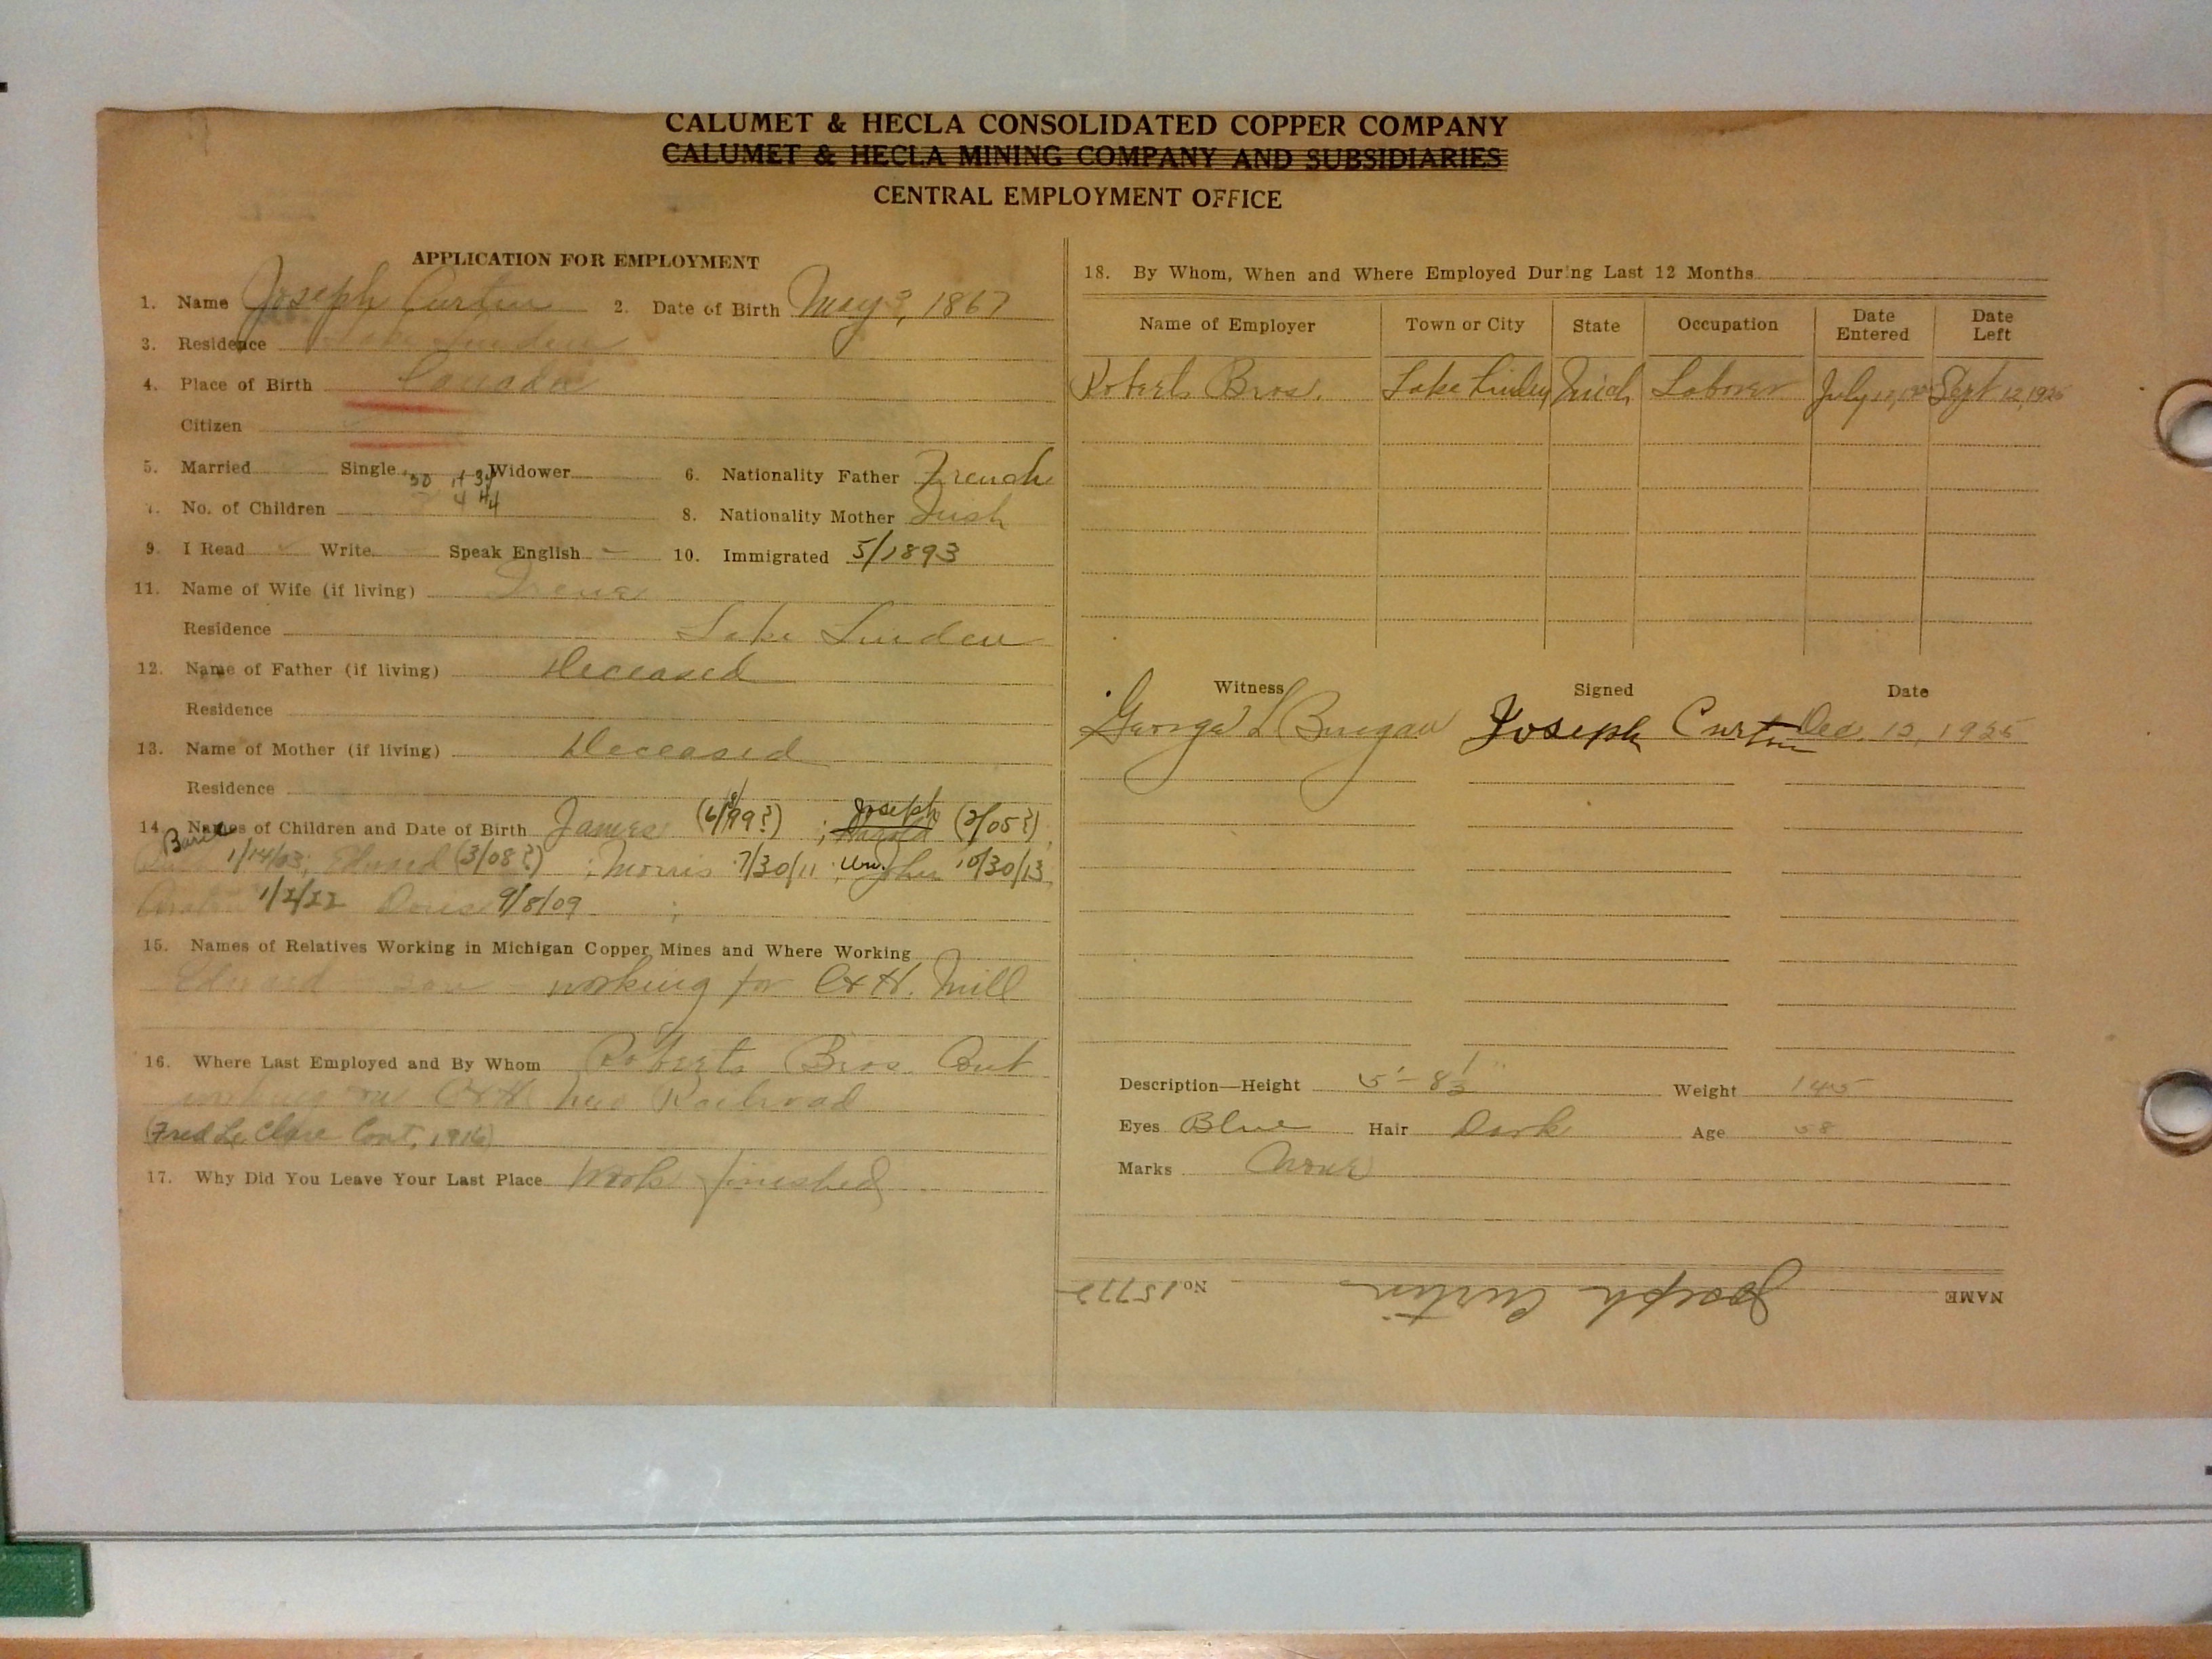 CALUMET & HECLA CONSOLIDATED COPPER COMPANY
CALUMET & HECLA MINING COMPANY AND SUBSIDIARIES
CENTRAL EMPLOYMENT OFFICE
APPLICATION FOR EMPLOYMENT
1. Name Joseph Curtin 2. Date of Birth May 3, 1867
3. Residence Lake Linden
4. Place of Birth Canada
Citizen
5. Married Single Widower 6. Nationality Father French
7. No. of Children 8. Nationality Mother Irish
9. I Read Write Speak English 10. Immigrated 5/1893
11. Name of Wife (if living)
Residence Lake Linden
12. Name of Father (if living) Deceased
Residence
13. Name of Mother (if living) Deceased
Residence
14. Names of Children and Date of Birth James (6/99?) ; Joseph (2/05?)
1/14/03; Edward (3/08?) ; Morris 7/30/11 ; Wm. John 10/30/13
1/2/22 Doris 9/8/09 ;
15. Names of Relatives Working in Michigan Copper Mines and Where Working
Edward son - working for C & H. Mill
16. Where Last Employed and By Whom Roberts Bros. Cont
working on C & H new Railroad
(Fred Le Clare Cont, 1916)
17. Why Did You Leave Your Last Place Work finished
18. By Whom, When and Where Employed During Last 12 Months
Name of Employer Town or City State Occupation Date Entered Date Left
Roberts Bros. Lake Linden Mich Laborer July Sept 12, 1925
Witness Signed Date
George L Joseph Curtin Dec. 12, 1925
Description—Height 5' - 8½" Weight 145
Eyes Blue Hair Dark Age 58
Marks None
NAME Joseph Curtin No. 15772